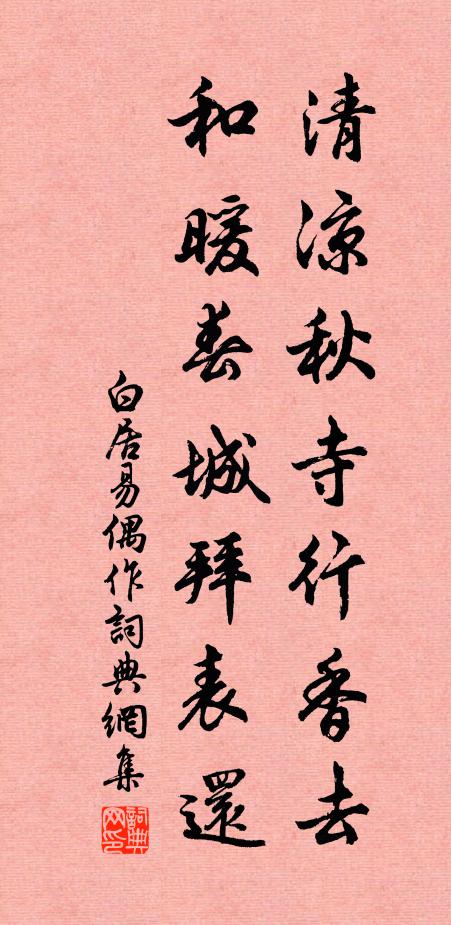 清涼秋寺行香去
和暖春城拜表還
白居易偶作詞典網集
詞典网印